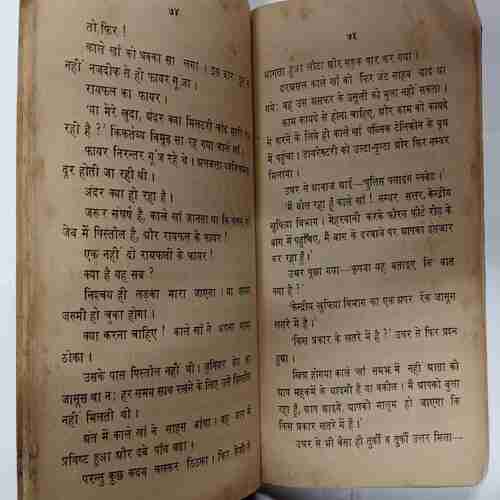 ७४
तो फिर !
काले खाँ को धक्का सा लगा । इस बार
नहीं नजदीक से ही फायर गूंजा ।
रायफल का फायर ।
'या मेरे खुदा, अंदर क्या मिलटरी
रही है ?' किंकर्तव्य विमूढ़ सा रह गया काले खाँ ।
फायर निरन्तर गूंज रहे थे । अलबत्ता
दूर होती जा रही थी ।
अंदर क्या हो रहा है ।
जरूर संघर्ष है, काले खाँ जानता था कि
जेब में पिस्तौल है, और रायफल के फायर !
एक नहीं दो रायफलों के फायर !
क्या है यह सब ?
निश्चय ही लड़का मारा जाएगा । या शायद
जख्मी हो चुका होगा ।
क्या करना चाहिए ! काले खाँ ने अपना
ठोका ।
उसके पास पिस्तौल नहीं थी ।
जासूस था न; हर समय साथ रखने के लिए उसे पिस्तौल
नहीं मिलती थी ।
अंत में काले खाँ ने साहस बांधा । वह बाग में
प्रविष्ट हुआ और दबे पाँव बढ़ा ।
परन्तु कुछ कदम चलकर ठिठका । फिर तेजी से
७५
भागता हुआ लौटा और सड़क पार कर गया ।
दरअसल काले खाँ को फिर जेट साहब याद आ
गये; वह उस अफसर के उसूलों को भुला नहीं सकता ।
काम कायदे से होना चाहिए, और काम को कायदे
में करने के लिये ही काले खाँ पब्लिक टेलिफोन के बूथ
में पहुंचा । डायरेक्टरी को उल्टा-पुल्टा और फिर नम्बर
मिलाया ।
उधर से आवाज आई—'पुलिस फ्लाइंग स्क्वेड ।'
'मैं बोल रहा हूँ काले खाँ ! नम्बर सत्तर, केन्द्रीय
खुफिया विभाग । मेहरबानी करके फौरन छोटे रोड के
बाग में पहुंचिए, मैं बाग के दरवाजे पर आपका इंतजार
कर रहा हूँ ।'
उधर पूछा गया—'कृपया यह बताइए कि बात
क्या है ?'
'केन्द्रीय खुफिया विभाग का एक अपर रेंक जासूस
खतरे में है ।'
'किस प्रकार के खतरे में है ?' उधर से फिर प्रश्न
हुआ ।
खिन्न होगया काले खाँ समझ में नहीं आता की
आप महकमें के आदमी हैं या वकील । मैं आपको बुला
रहा हूँ, आप आइये, आपको मालूम हो जाएगा कि
किस प्रकार खतरे में हैं ।'
उधर से भी वैसा ही तुर्की व तुर्की उत्तर मिला—